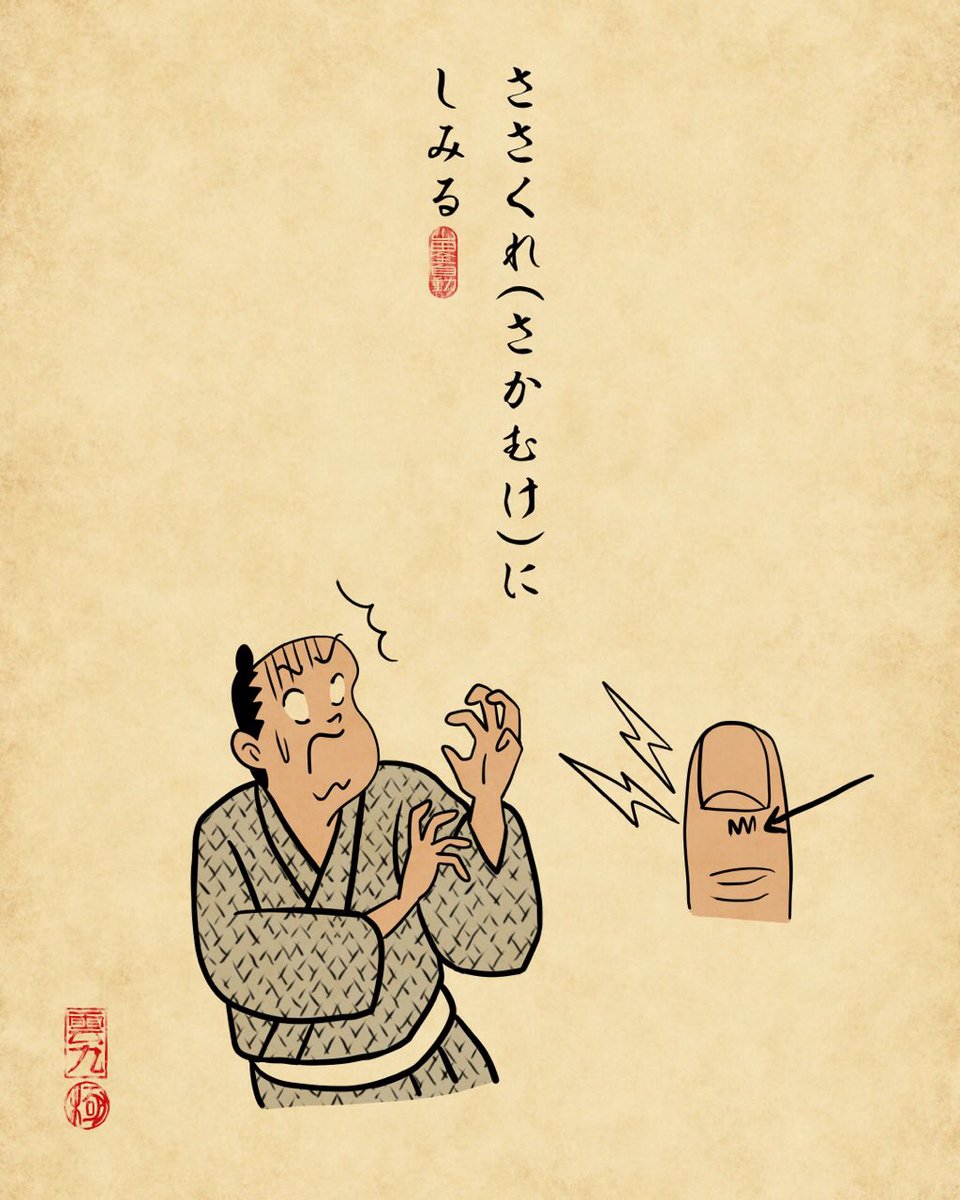 ささくれ(さかむけ)に
しみる